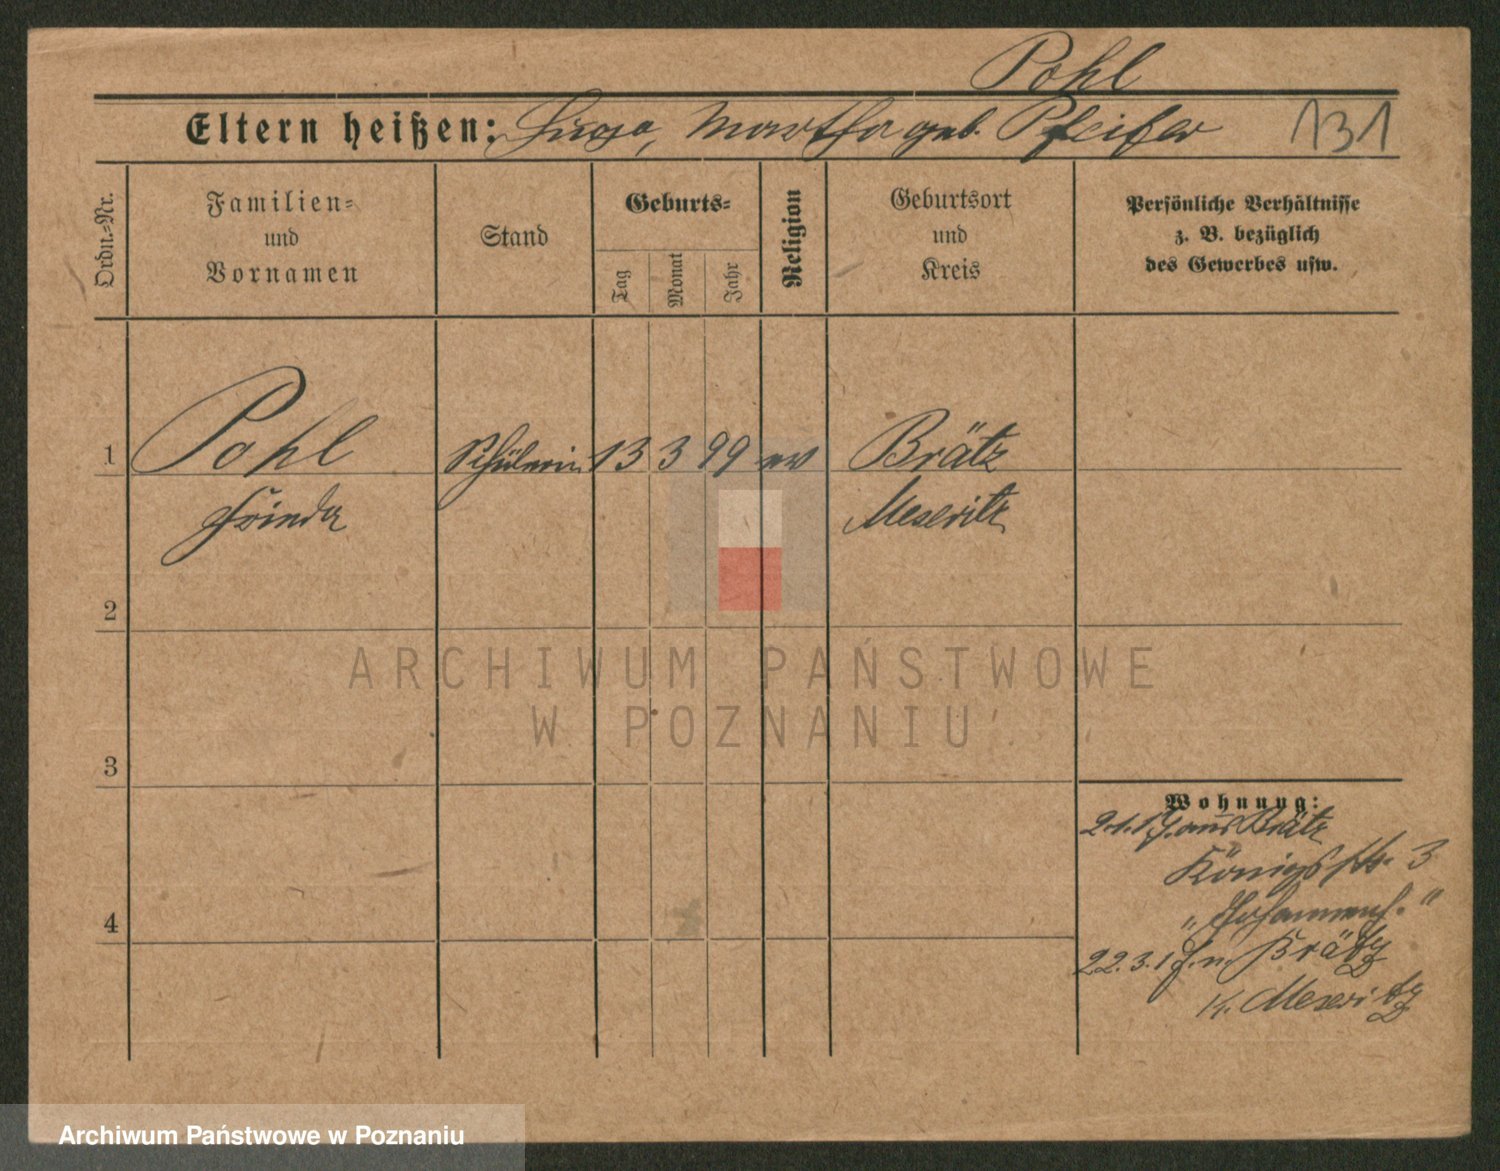 Pohl
Eltern heißen: Hugo, Martha geb. Pfeifer 131
Ordn.-Nr.
Familien-
und
Vornamen
Stand
Geburts-
Tag
Monat
Jahr
Religion
Geburtsort
und
Kreis
Persönliche Verhältnisse
z. B. bezüglich
des Gewerbes usw.
1 Pohl Schülerin 13 3 99 ev Brätz
Frieda Meseritz
2
ARCHIWUM PAŃSTWOWE
W POZNANIU
3
Wohnung:
aus Brätz
Königstr. 3
4
22.3. n. Brätz
K. Meseritz
Archiwum Państwowe w Poznaniu